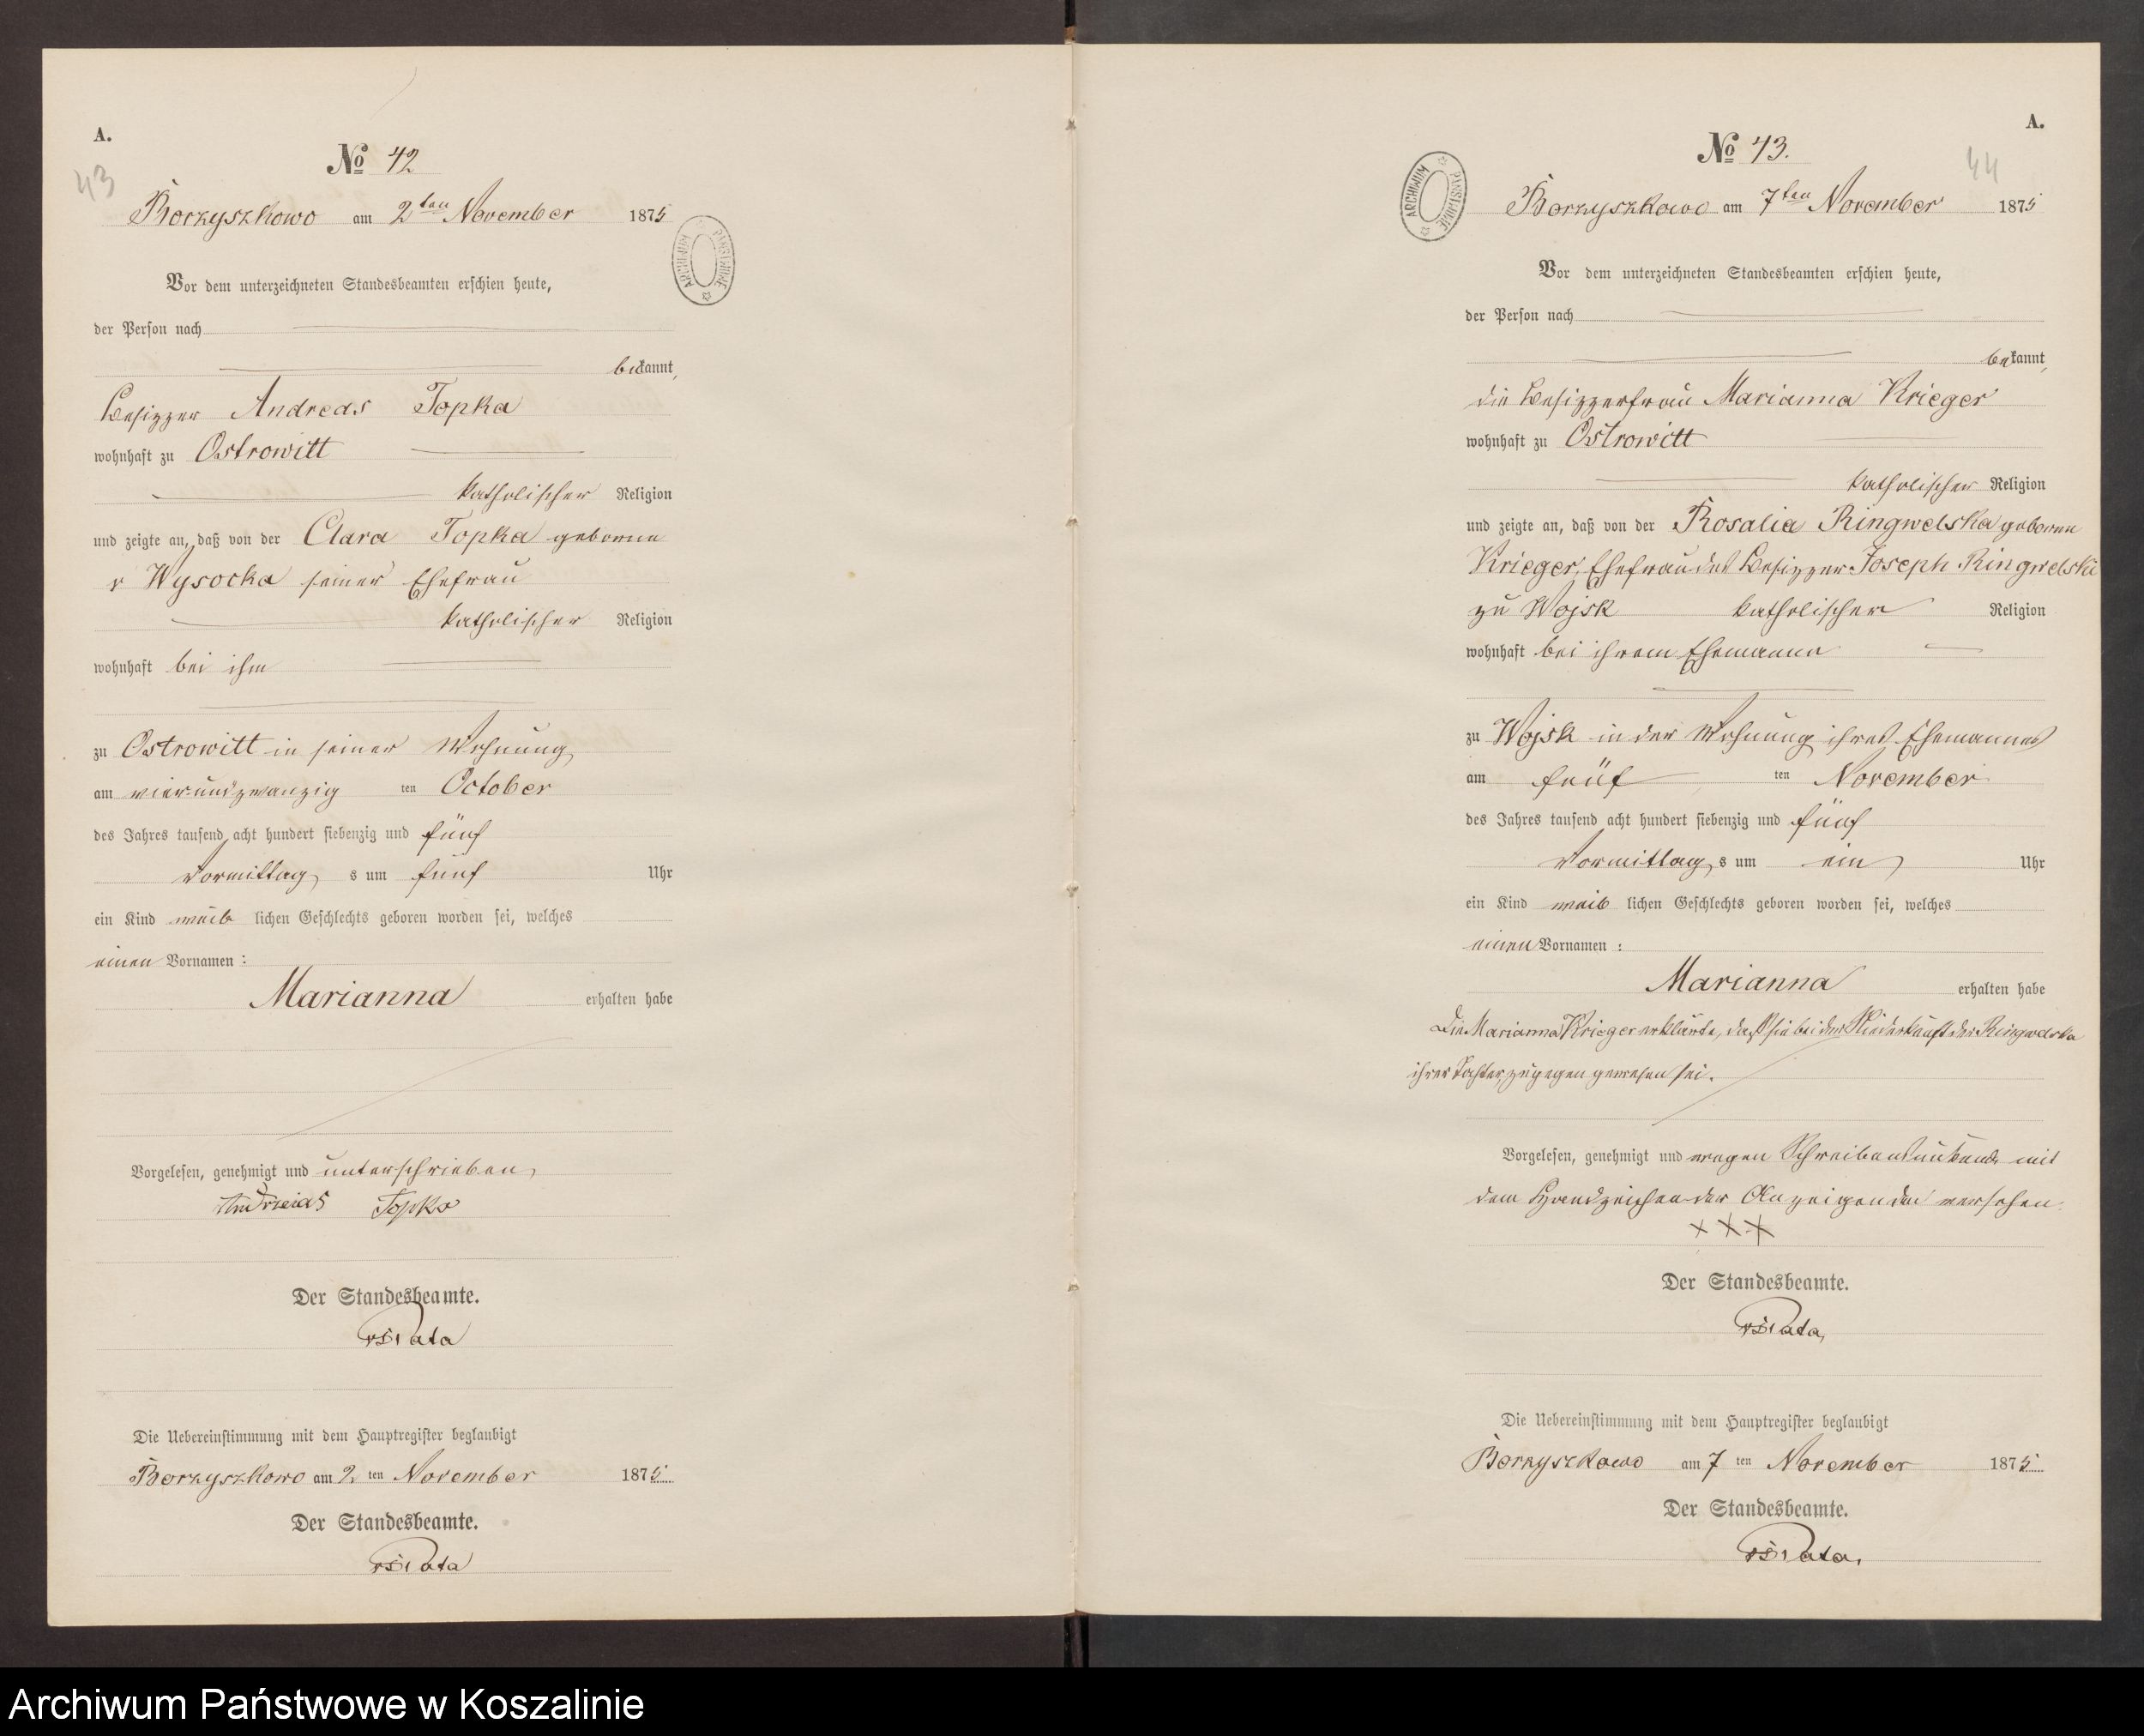 A.
43
No 42
Borzyszkowo am 2ten November 1875
ARCHIWUM PAŃSTWOWE
Vor dem unterzeichneten Standesbeamten erschien heute,
der Person nach
bekannt,
Besizzer Andreas Topka
wohnhaft zu Ostrowitt
katholischer Religion
und zeigte an, daß von der Clara Topka geborene
r Wysocka seiner Ehefrau
katholischer Religion
wohnhaft bei ihm
zu Ostrowitt in seiner Wohnung
am vierundzwanzig ten October
des Jahres tausend acht hundert siebenzig und fünf
Vormittag s um fünf Uhr
ein Kind weib lichen Geschlechts geboren worden sei, welches
einen Vornamen:
Marianna erhalten habe
Vorgelesen, genehmigt und unterschrieben,
Topka
Der Standesbeamte.
Die Uebereinstimmung mit dem Hauptregister beglaubigt
Borzyszkowo am 2 ten November 1875
Der Standesbeamte.
A.
44
No 43.
ARCHIWUM PAŃSTWOWE
Borzyszkowo am 7ten November 1875
Vor dem unterzeichneten Standesbeamten erschien heute,
der Person nach
bekannt,
die Besizzerfrau Marianna Krieger
wohnhaft zu Ostrowitt
katholischer Religion
und zeigte an, daß von der Rosalia Ringwelska geborene
Krieger, Ehefrau des Besizzer Joseph Ringwelski
zu Wojsk katholischer Religion
wohnhaft bei ihrem Ehemanne
zu Wojsk in der Wohnung ihres Ehemannes
am füuf ten November
des Jahres tausend acht hundert siebenzig und fünf
Vormittag s um ein Uhr
ein Kind weib lichen Geschlechts geboren worden sei, welches
einen Vornamen:
Marianna erhalten habe
Die Marianna Krieger erklärte, daß sie bei der Niederkunft der Ringwelska
ihrer Tochter zugegen gewesen sei.
Vorgelesen, genehmigt und wegen Schreibensunkunde mit
dem Handzeichen der Anzeigenden versehen.
X X X
Der Standesbeamte.
Die Uebereinstimmung mit dem Hauptregister beglaubigt
Borzyszkowo am 7 ten November 1875
Der Standesbeamte.
Archiwum Państwowe w Koszalinie